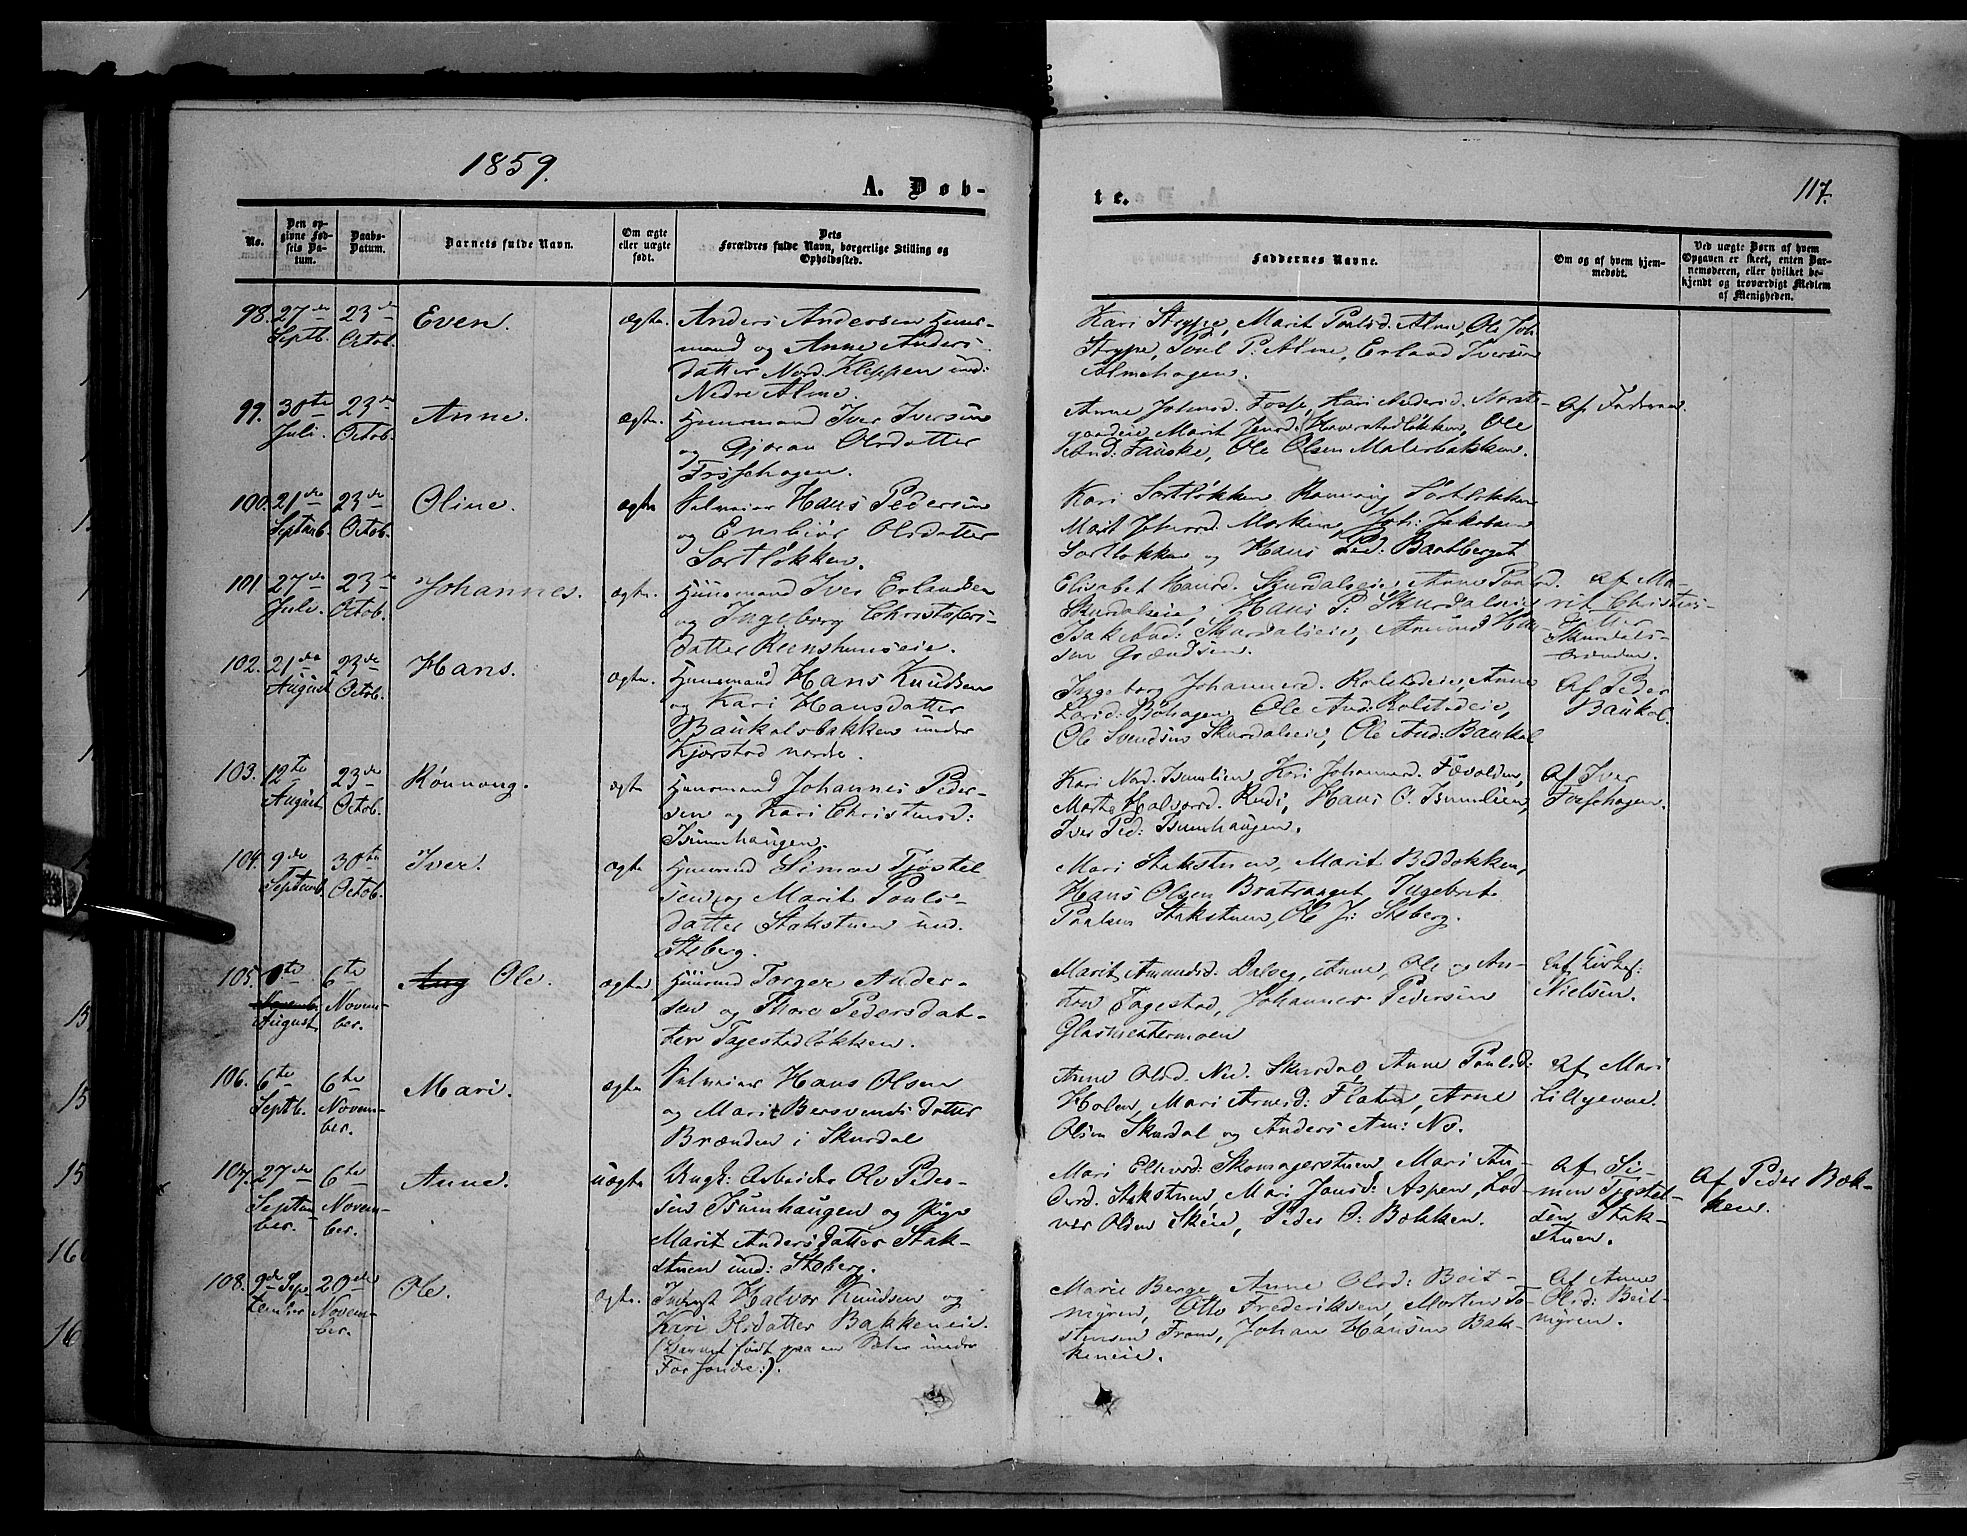 1859.
A. Døb-
te.
117.
No.
Den op-
givne Fød-
sels Da-
tum.
Daabs-
Datum.
Barnets fulde Navn.
Om ægte
eller uægte
født.
Dets
Forældres fulde Navn, borgerlige Stilling og
Opholdssted.
Faddernes Navne.
Om og af hvem hjem-
medøbt.
Ved uægte Børn af hvem
Opgaven er skeet, enten Bar-
nemoderen, eller hvilket be-
kjendt og troværdigt Medlem
af Menigheden.
98. 27de Septb. 23de Octob. Even. ægte.
Anders Andersen Huus-
mand og Anne Anders-
datter Nord. Kleppen und:
Nedre Alme.
Kari Strype, Marit Paulsd. Alme, Ole Joh
Strype, Poul P: Alme, Erland Iversen
Almehagen.
99. 30te Juli. 23de Octob. Anne. ægte.
Huusmand Iver Iversen
og Gjøran Olsdatter
Fosshagen.
Anne Johnsd. Fosse, Kari
Marit Ole
And: Fauske, Ole Olsen Malerbakken.
Af Faderen.
100. 21de Septemb. 23de Octob. Oline. ægte
Selveier Hans Pedersen
og Embiør Olsdatter
Sortløkken.
Kari Sortløkken Rønnoug Sortløkken
Marit Joh: Jakobsen
Sortløkken og Hans Ped: Bartberget
101. 27de Juli. 23de Octob. Johannes. ægte.
Huusmand Iver Erlandsen
og Ingeborg Christophers-
datter
Elisabet Hansd. Skurdalseie, Anne Paulsd.
Skurdalseie, Hans P: Skurdalseie
Isak And: Skurdalseie, Amund Han-
sen Grændsen.
Af Ma-
rit Christens-
datter
Skurdals-
102. 21de August 23de Octob. Hans. ægte.
Huusmand Hans Knudsen
og Kari Hansdatter
Baukolsbakken under
Kjørstad nordre.
Ingeborg Johannesd. Rolstadeie, Anne
Larsd: Bøhagen, Ole And: Rolstadeie,
Ole Svendsen Skurdalseie, Ole And: Baukol
Af Peder
Baukol.
103. 12te August 23de Octob. Rønnoug. ægte
Huusmand Johannes Peder-
sen og Kari Christensd:
Isumhaugen.
Kari Nord. Isumlien, Kari Johannesd.
Marthe Halvorsd. Rudi, Hans O. Isumlien,
Iver Ped: Isumhaugen.
Af Iver
Fosshagen.
104. 9de Septemb. 30te Octob. Iver. ægte
Huusmd Simen Tjøstel-
sen og Marit Pouls-
datter Stakstuen und.
Steberg.
Mari Stakstuen, Marit
Hans Olsen Bratvanget Ingebret
Paulsen Stakstuen, Ole J: Steberg.
105. August 6te November. Ole. ægte
Huusmd Torger Ander-
sen og Thore Pedersdat-
ter Tagestadløkken.
Marit Amundsd. Dalseg, Anne, Ole og An-
Tagestad, Johannes Pedersen
Glasmestermoen
Af
Nielsen.
106. 6te Septb. 6te November. Mari. ægte
Selveier Hans Olsen
og Marit Bersvendsdatter
Brænden i Skurdal
Anne Olsd. Ned. Skurdal, Anne Paulsd:
Holen, Mari Arnesd: Flaten, Arne
Olsen Skurdal og Anders Am: No.
Af Mari
107. 27de September. 6te November. Anne. uægte
Ungk: Arbeider Ole Peder-
sen Isumhaugen og Pige
Marit Andersdatter Stak-
stuen und: Steberg.
Mari Skomagerstuen, Mari An-
dersd. Stakstuen, Mari Jansd: Aspen,
Olsen Skeie, Peder O: Bakken.
Af Si-
men Tjøstel-
sen Stak-
stuen.
Af Peder Bak-
ken.
108. 9de September 20de November. Ole. ægte.
Inderst Halvor Knudsen og
Kari Olsdatter Bakkeneie.
(Barnet født paa en Sæter under
Forsøndre:).
Marie Berge, Anne Olsd: Beit-
myren, Otto Frederiksen, Morten To-
stensen Fron, Johan Hansen Bak-
keneie.
Af Anne
Olsd: Beit-
myren.